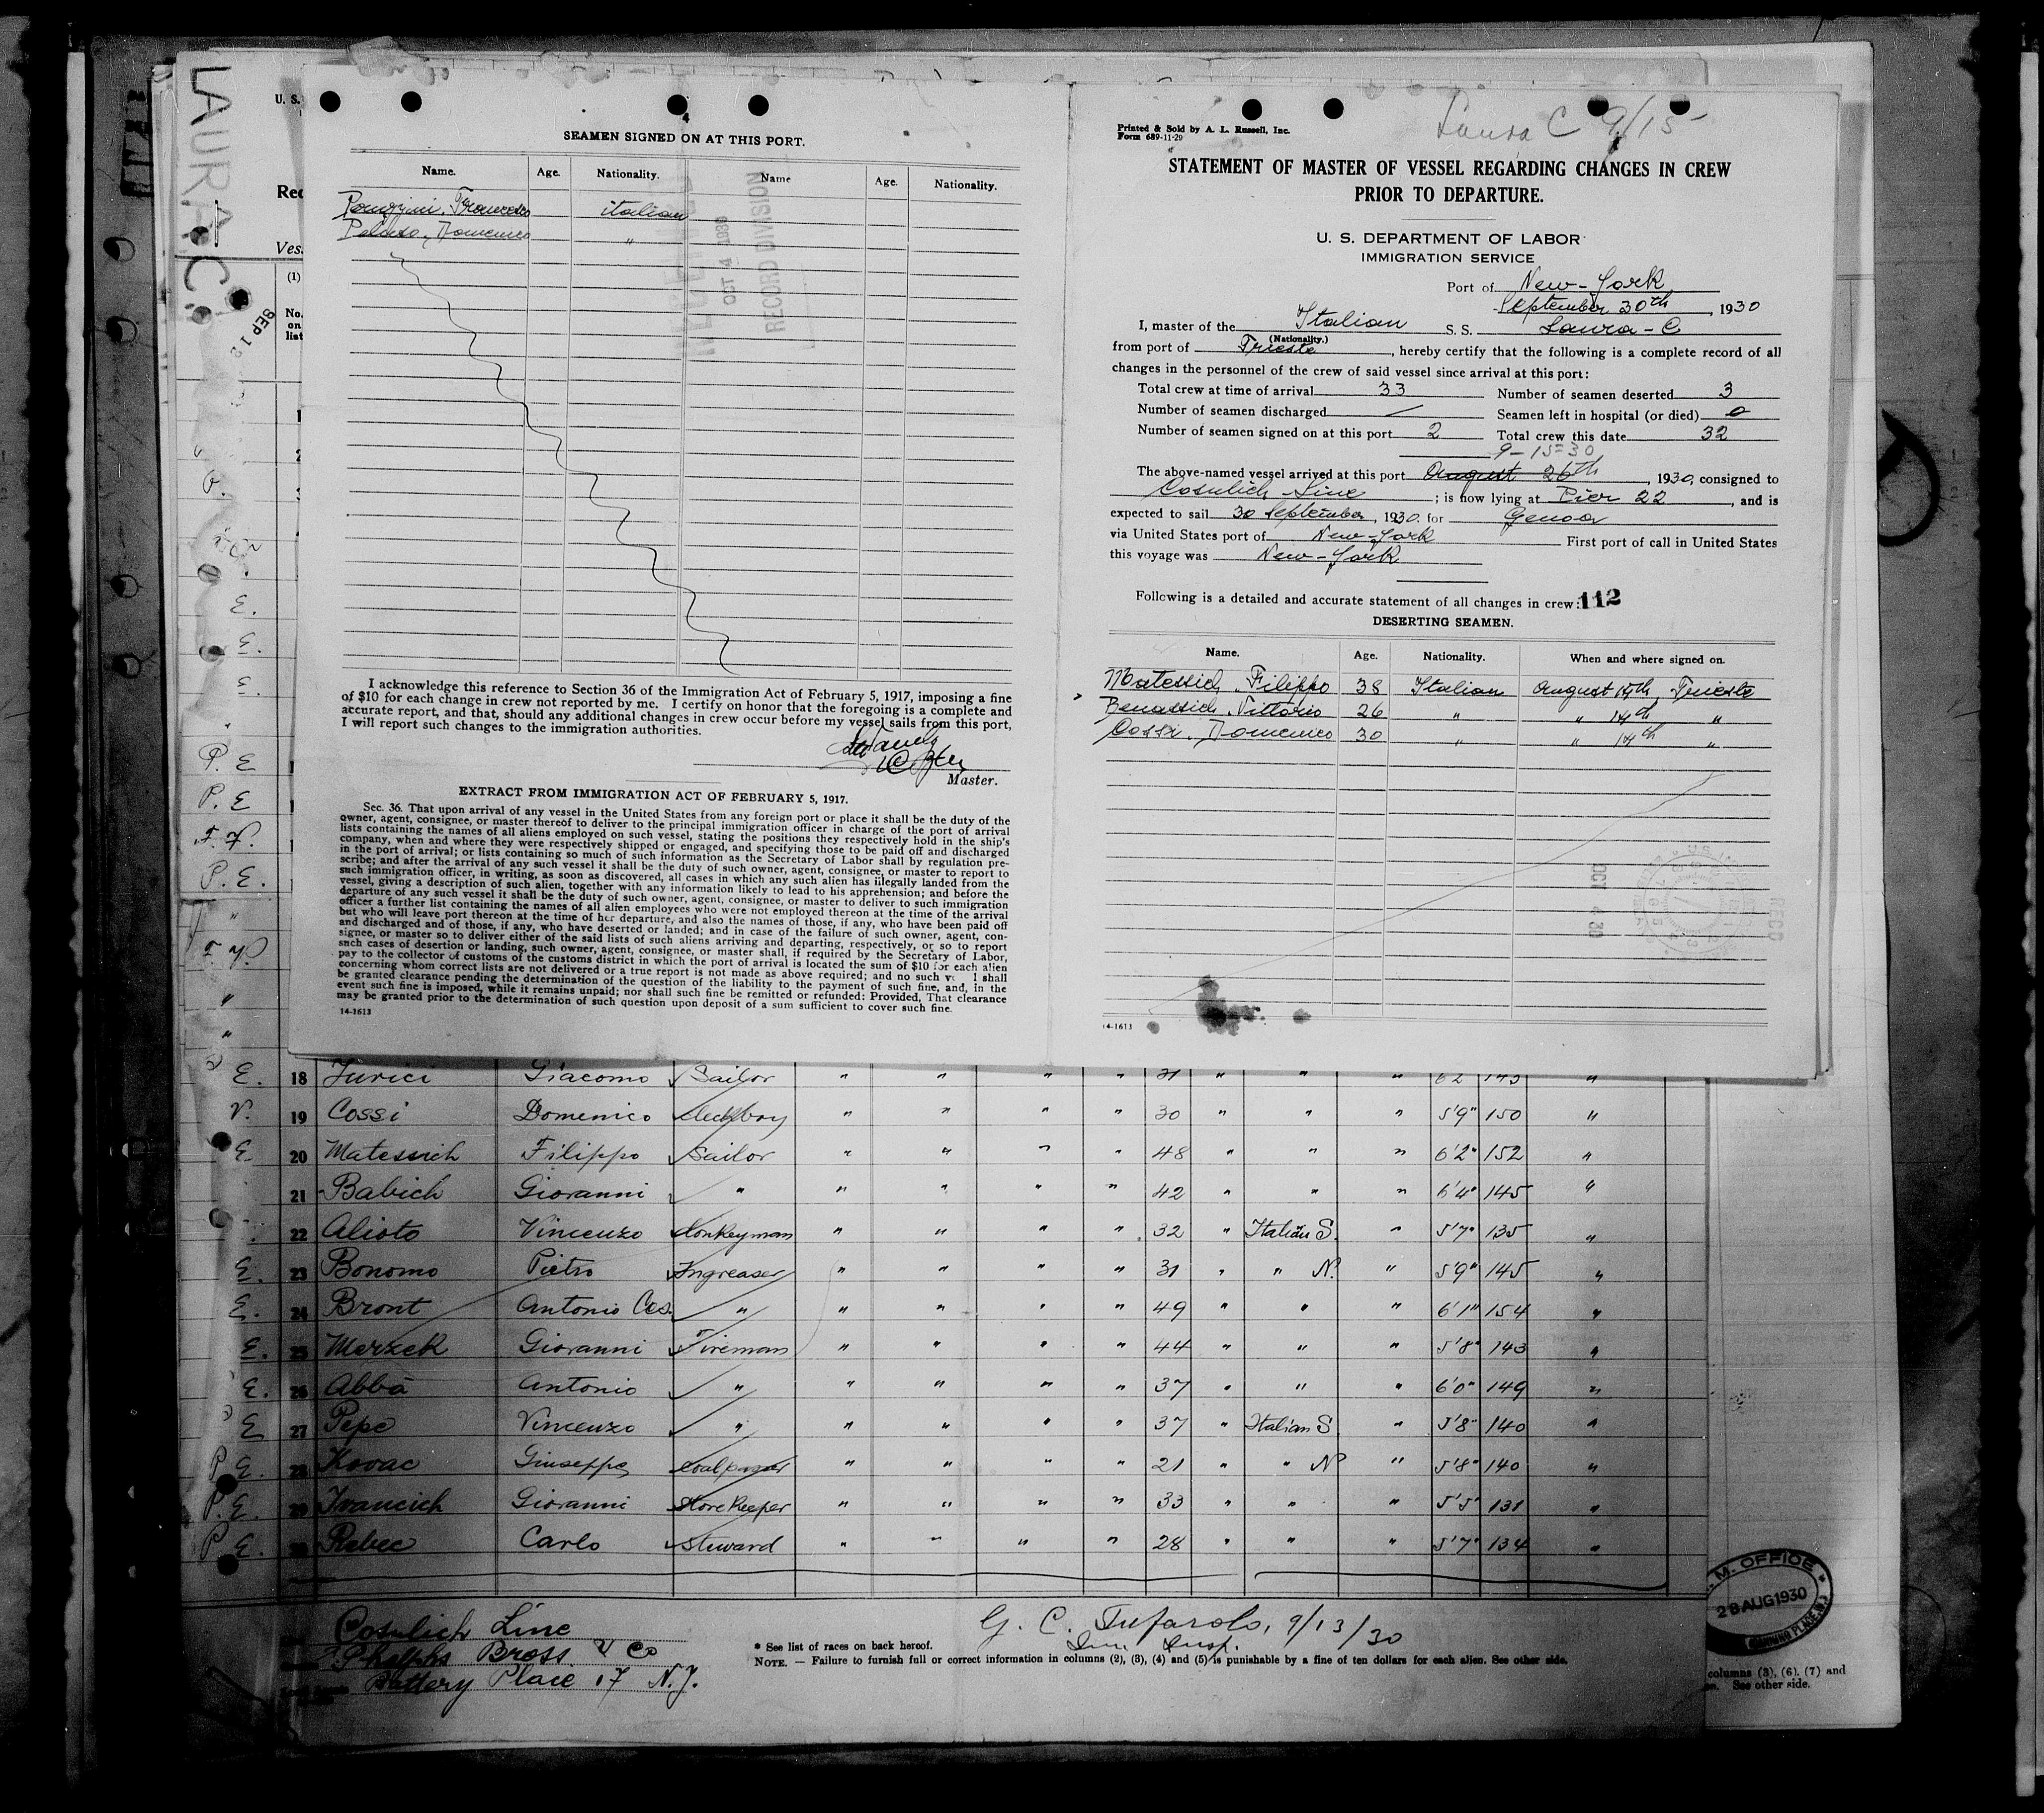 LAURA C.
U. S.
Rec
Ves
(1)
No. on list
SEP 1
4
SEAMEN SIGNED ON AT THIS PORT.
Name. Age. Nationality. Name Age. Nationality.
Francesco italian
Domenico "
RECEIVED
OCT 4 1930
RECORD DIVISION
I acknowledge this reference to Section 36 of the Immigration Act of February 5, 1917, imposing a fine
of $10 for each change in crew not reported by me. I certify on honor that the foregoing is a complete and
accurate report, and that, should any additional changes in crew occur before my vessel sails from this port,
I will report such changes to the immigration authorities.
Master.
EXTRACT FROM IMMIGRATION ACT OF FEBRUARY 5, 1917.
Sec. 36. That upon arrival of any vessel in the United States from any foreign port or place it shall be the duty of the
owner, agent, consignee, or master thereof to deliver to the principal immigration officer in charge of the port of arrival
lists containing the names of all aliens employed on such vessel, stating the positions they respectively hold in the ship's
company, when and where they were respectively shipped or engaged, and specifying those to be paid off and discharged
in the port of arrival; or lists containing so much of such information as the Secretary of Labor shall by regulation pre-
scribe; and after the arrival of any such vessel it shall be the duty of such owner, agent, consignee, or master to report to
such immigration officer, in writing, as soon as discovered, all cases in which any such alien has illegally landed from the
vessel, giving a description of such alien, together with any information likely to lead to his apprehension; and before the
departure of any such vessel it shall be the duty of such owner, agent, consignee, or master to deliver to such immigration
officer a further list containing the names of all alien employees who were not employed thereon at the time of the arrival
but who will leave port thereon at the time of her departure, and also the names of those, if any, who have been paid off
and discharged and of those, if any, who have deserted or landed; and in case of the failure of such owner, agent, con-
signee, or master so to deliver either of the said lists of such aliens arriving and departing, respectively, or so to report
such cases of desertion or landing, such owner, agent, consignee, or master shall, if required by the Secretary of Labor,
pay to the collector of customs of the customs district in which the port of arrival is located the sum of $10 for each alien
concerning whom correct lists are not delivered or a true report is not made as above required; and no such v l shall
be granted clearance pending the determination of the question of the liability to the payment of such fine, and, in the
event such fine is imposed, while it remains unpaid; nor shall such fine be remitted or refunded: Provided, That clearance
may be granted prior to the determination of such question upon deposit of a sum sufficient to cover such fine.
14-1613
Laura C 9/15
Printed & Sold by A. L. Russell, Inc.
Form 689-11-29
STATEMENT OF MASTER OF VESSEL REGARDING CHANGES IN CREW
PRIOR TO DEPARTURE.
U. S. DEPARTMENT OF LABOR
IMMIGRATION SERVICE
Port of New-York
September 30th, 1930
I, master of the Italian S. S. Laura-C
(Nationality.)
from port of Trieste, hereby certify that the following is a complete record of all
changes in the personnel of the crew of said vessel since arrival at this port:
Total crew at time of arrival 33 Number of seamen deserted 3
Number of seamen discharged — Seamen left in hospital (or died) 0
Number of seamen signed on at this port 2 Total crew this date 32
9-15-30
The above-named vessel arrived at this port August 26th, 1930, consigned to
Cosulich Line; is now lying at Pier 22, and is
expected to sail 30 September, 1930. for Genoa
via United States port of New-York First port of call in United States
this voyage was New-York
Following is a detailed and accurate statement of all changes in crew: 112
DESERTING SEAMEN.
Name. Age. Nationality. When and where signed on.
Matessich Filippo 38 Italian August 14th Trieste
Benassich Vittorio 26 " " 14th "
Cossi Domenico 30 " " 14th "
OCT 4 30
RECD
14-1613
E. 18 Jurici Giacomo Sailor " " " " 31 " " " 6'2" 143 "
19 Cossi Domenico deckboy " " " " 30 " " " 5'9" 150 "
E 20 Matessich Filippo Sailor " " " " 48 " " " 6'2" 152 "
21 Babich Giovanni " " " " " 42 " " " 6'4" 145 "
22 Alioto Vincenzo Donkeyman " " " " 32 " Italian S. " 5'7" 135 "
E. 23 Bonomo Pietro Ingreaser " " " " 31 " " N. " 5'9" 145 "
E. 24 Bront Antonio Ces. " " " " " 49 " " " 6'1" 154 "
E. 25 Merzek Giovanni Fireman " " " " 44 " " " 5'8" 143 "
E. 26 Abbà Antonio " " " " " 37 " " " 6'0" 149 "
E 27 Pepe Vincenzo " " " " " 37 " Italian S " 5'8" 140 "
P. E. 28 Kovac Giuseppe Coalpasser " " " " 21 " " N " 5'8" 140 "
P. E. 29 Ivancich Giovanni Storekeeper " " " " 33 " " " 5'5" 131 "
P. E. 30 Rebec Carlo Steward " " " " 28 " " " 5'7" 134 "
Cosulich Line
Phelphs Bross & Co
Battery Place 17 N.Y.
G. C. Tufarolo, 9/13/30
Imm. Insp.
* See list of races on back hereof.
NOTE. — Failure to furnish full or correct information in columns (2), (3), (4) and (5) is punishable by a fine of ten dollars for each alien. See other side.
M. OFFICE
28 AUG 1930
columns (3), (6), (7) and
en. See other side.